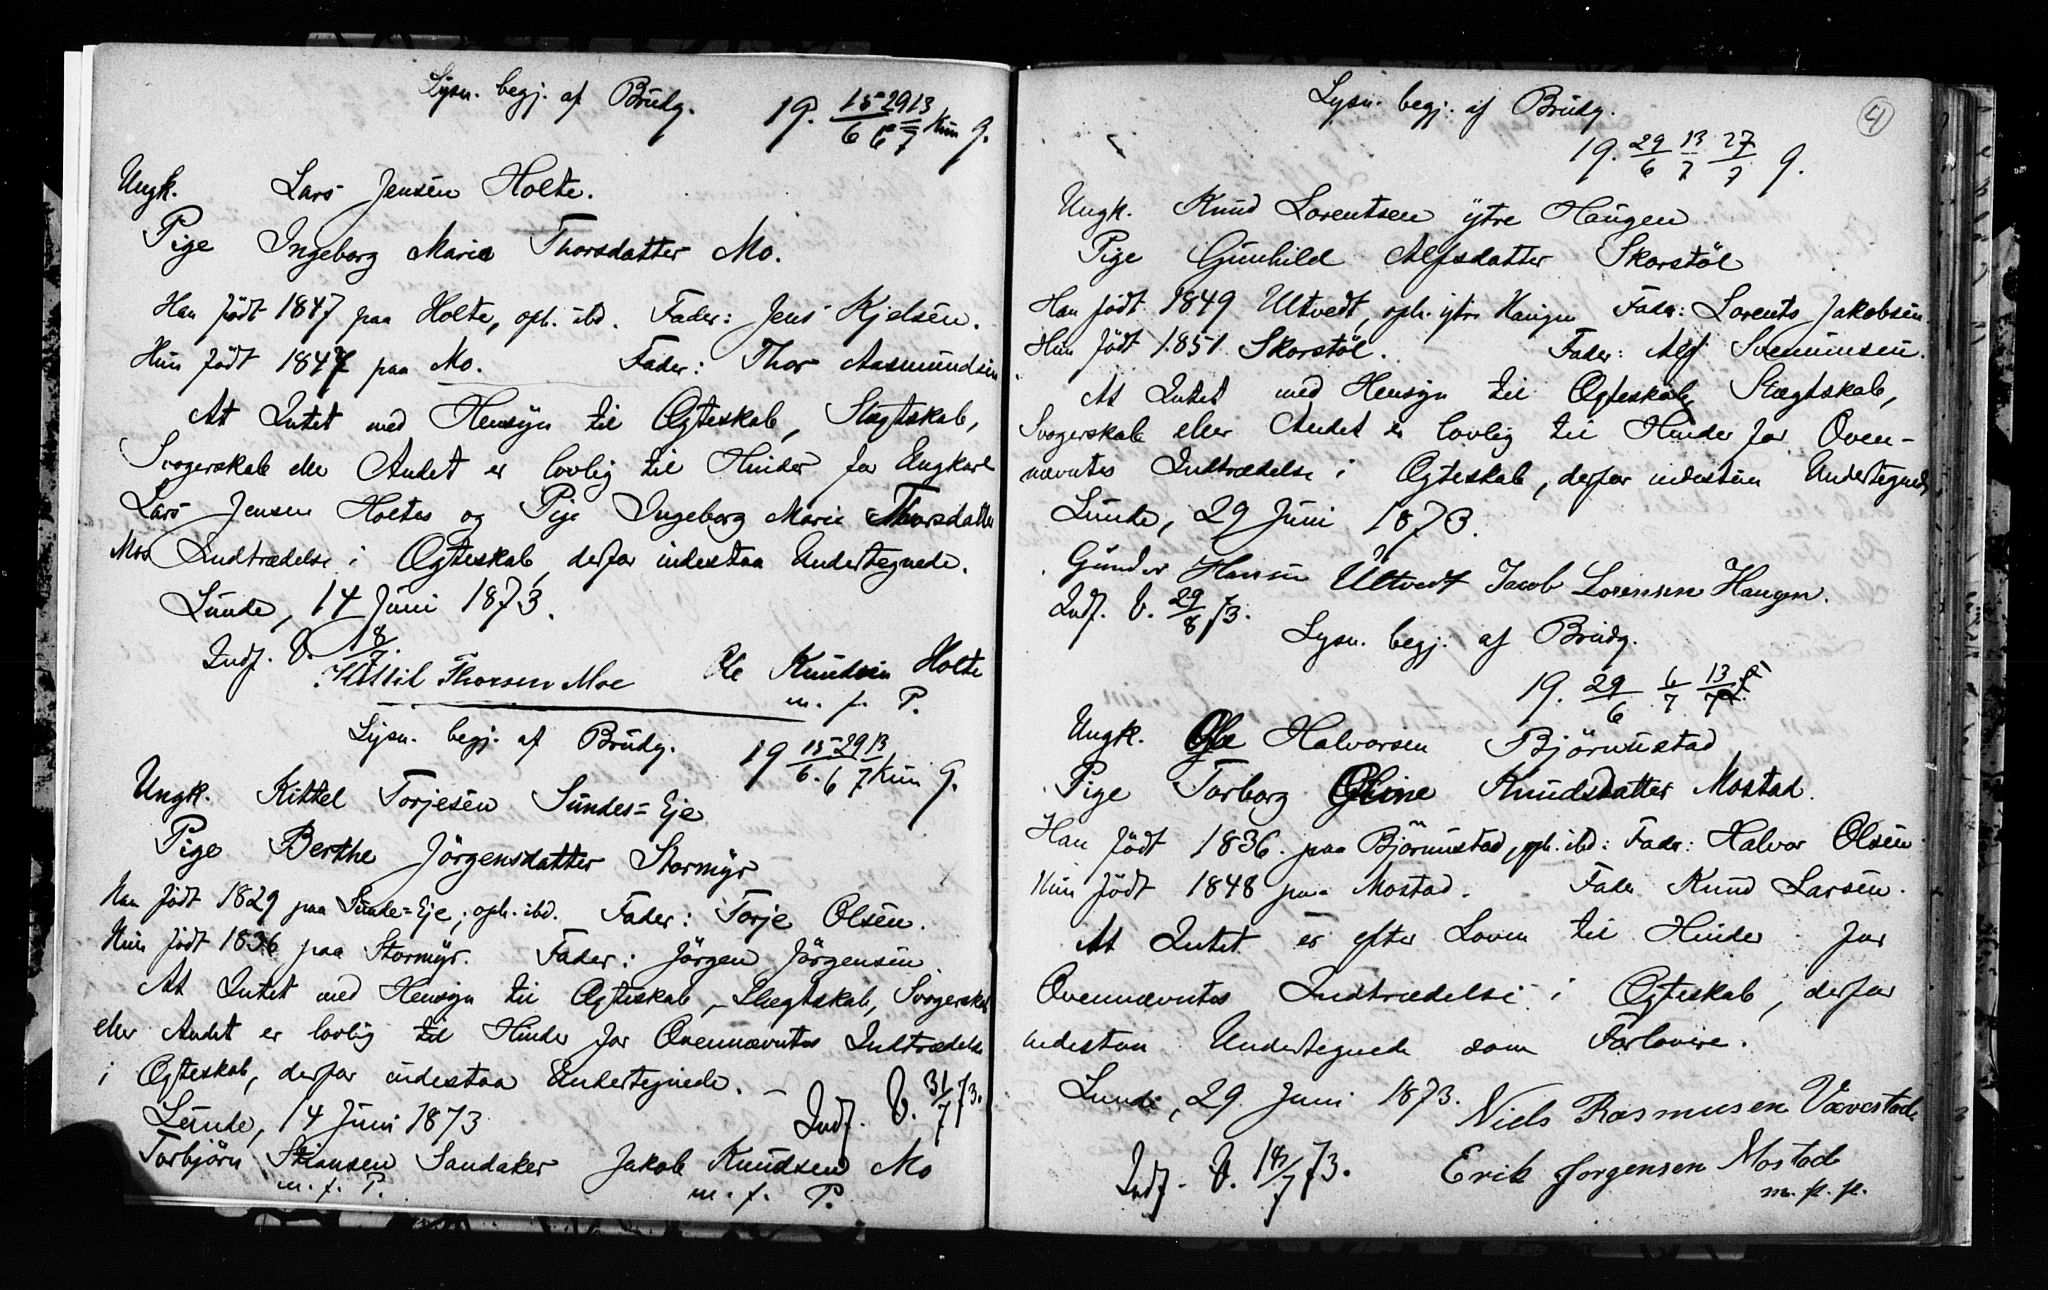 Lysn. begj. af Brudg.
19. 15/6 29/6 13/7 Kun g.
Ungk. Lars Jensen Holte.
Pige Ingeborg Marie Thorsdatter Mo.
Han født 1847 paa Holte, oph. ibd. Fader: Jens Kjelsen.
Hun født 1847 paa Mo. Fader: Thor Aasmundsen
At Intet med Hensyn til Ægteskab, Slægtskab,
Svogerskab eller Andet er lovlig til Hinder for Ungkarl
Lars Jensen Holtes og Pige Ingeborg Marie Thorsdatter
Mos Indtrædelse i Ægteskab, derfor indestaa Undertegnede.
Lunde, 14 Juni 1873.
Indf. V. 18/7.
Kittil Thorsen Moe Ole Knudsen Holte
m. f. P.
Lysn. begj. af Brudg.
19 15/6. 29/6 13/7 Kun g.
Ungk. Kittel Torjesen Sundes=Eje
Pige Berthe Jörgensdatter Stormyr
Han født 1829 paa Sunde=Eje, oph. ibd. Fader: Torje Olsen.
Hun født 1836 paa Stormyr. Fader: Jörgen Jörgensen
At Intet med Hensyn til Ægteskab, Slægtskab, Svogerskab
eller Andet er lovlig til Hinder for Ovennævntes Indtrædelse
i Ægteskab, derfor indestaa Undertegnede. –
Indf. V. 31/7 73.
Lunde, 14 Juni 1873
Torbjörn Sandaker Jakob Knudsen Mo
m. f. P. m. f. P.
4
Lysn. begj. af Brudg.
19. 29/6 13/7 27/7 g.
Ungk. Knud Lorentsen ytre Haugen
Pige Gunhild Alfsdatter Skorstöl
Han født 1849 Ultvedt, oph. ytre Haugen Fader: Lorents Jakobsen.
Hun født 1851 Skorstöl. Fader: Alf Svenumsen.
At Intet med Hensyn til Ægteskab, Slægtskab,
Svogerskab eller Andet er lovlig til Hinder for Oven-
nævntes Indtrædelse i Ægteskab, derfor indestaa Undertegnede
Lunde, 29 Juni 1873.
Gunder Hansen Ultvedt Jacob Lorensen Haugen.
Indf. V. 29/8 73.
Lysn. begj. af Brudg.
19. 29/6 6/7 13/7
Ungk. Ole Halvorsen Björnustad
Pige Torborg Oline Knudsdatter Mostad.
Han født 1836. paa Björnustad, oph. ibd: Fader: Halvor Olsen
Hun født 1848 paa Mostad. Fader Knud Larsen.
At Intet er efter Loven til Hinder for
Ovennævntes Indtrædelse i Ægteskab, derfor
indestaa Undertegnede som Forlovere.
Lunde, 29 Juni 1873.
Niels Rasmusen Vævestad
Indf. V. 18/7 73. Erik Jorgensen Mostad
m. p. p.